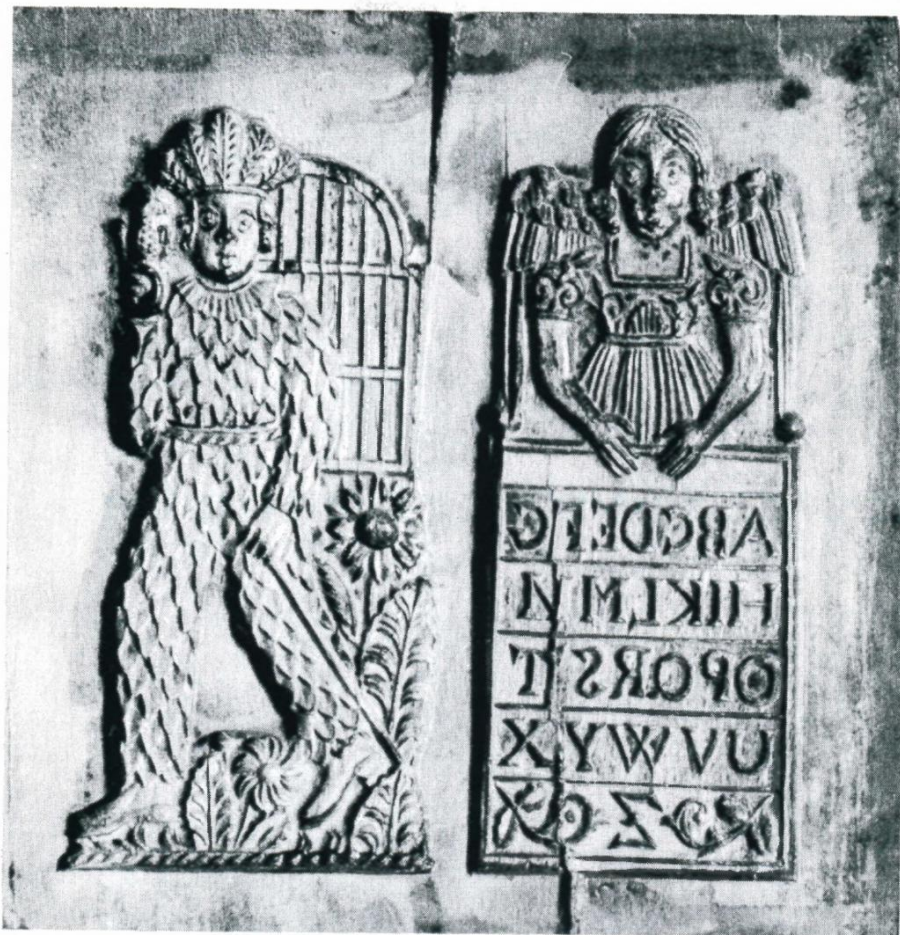 ABCDEFG
HIKLMN
OPQRST
UVWYX
Z